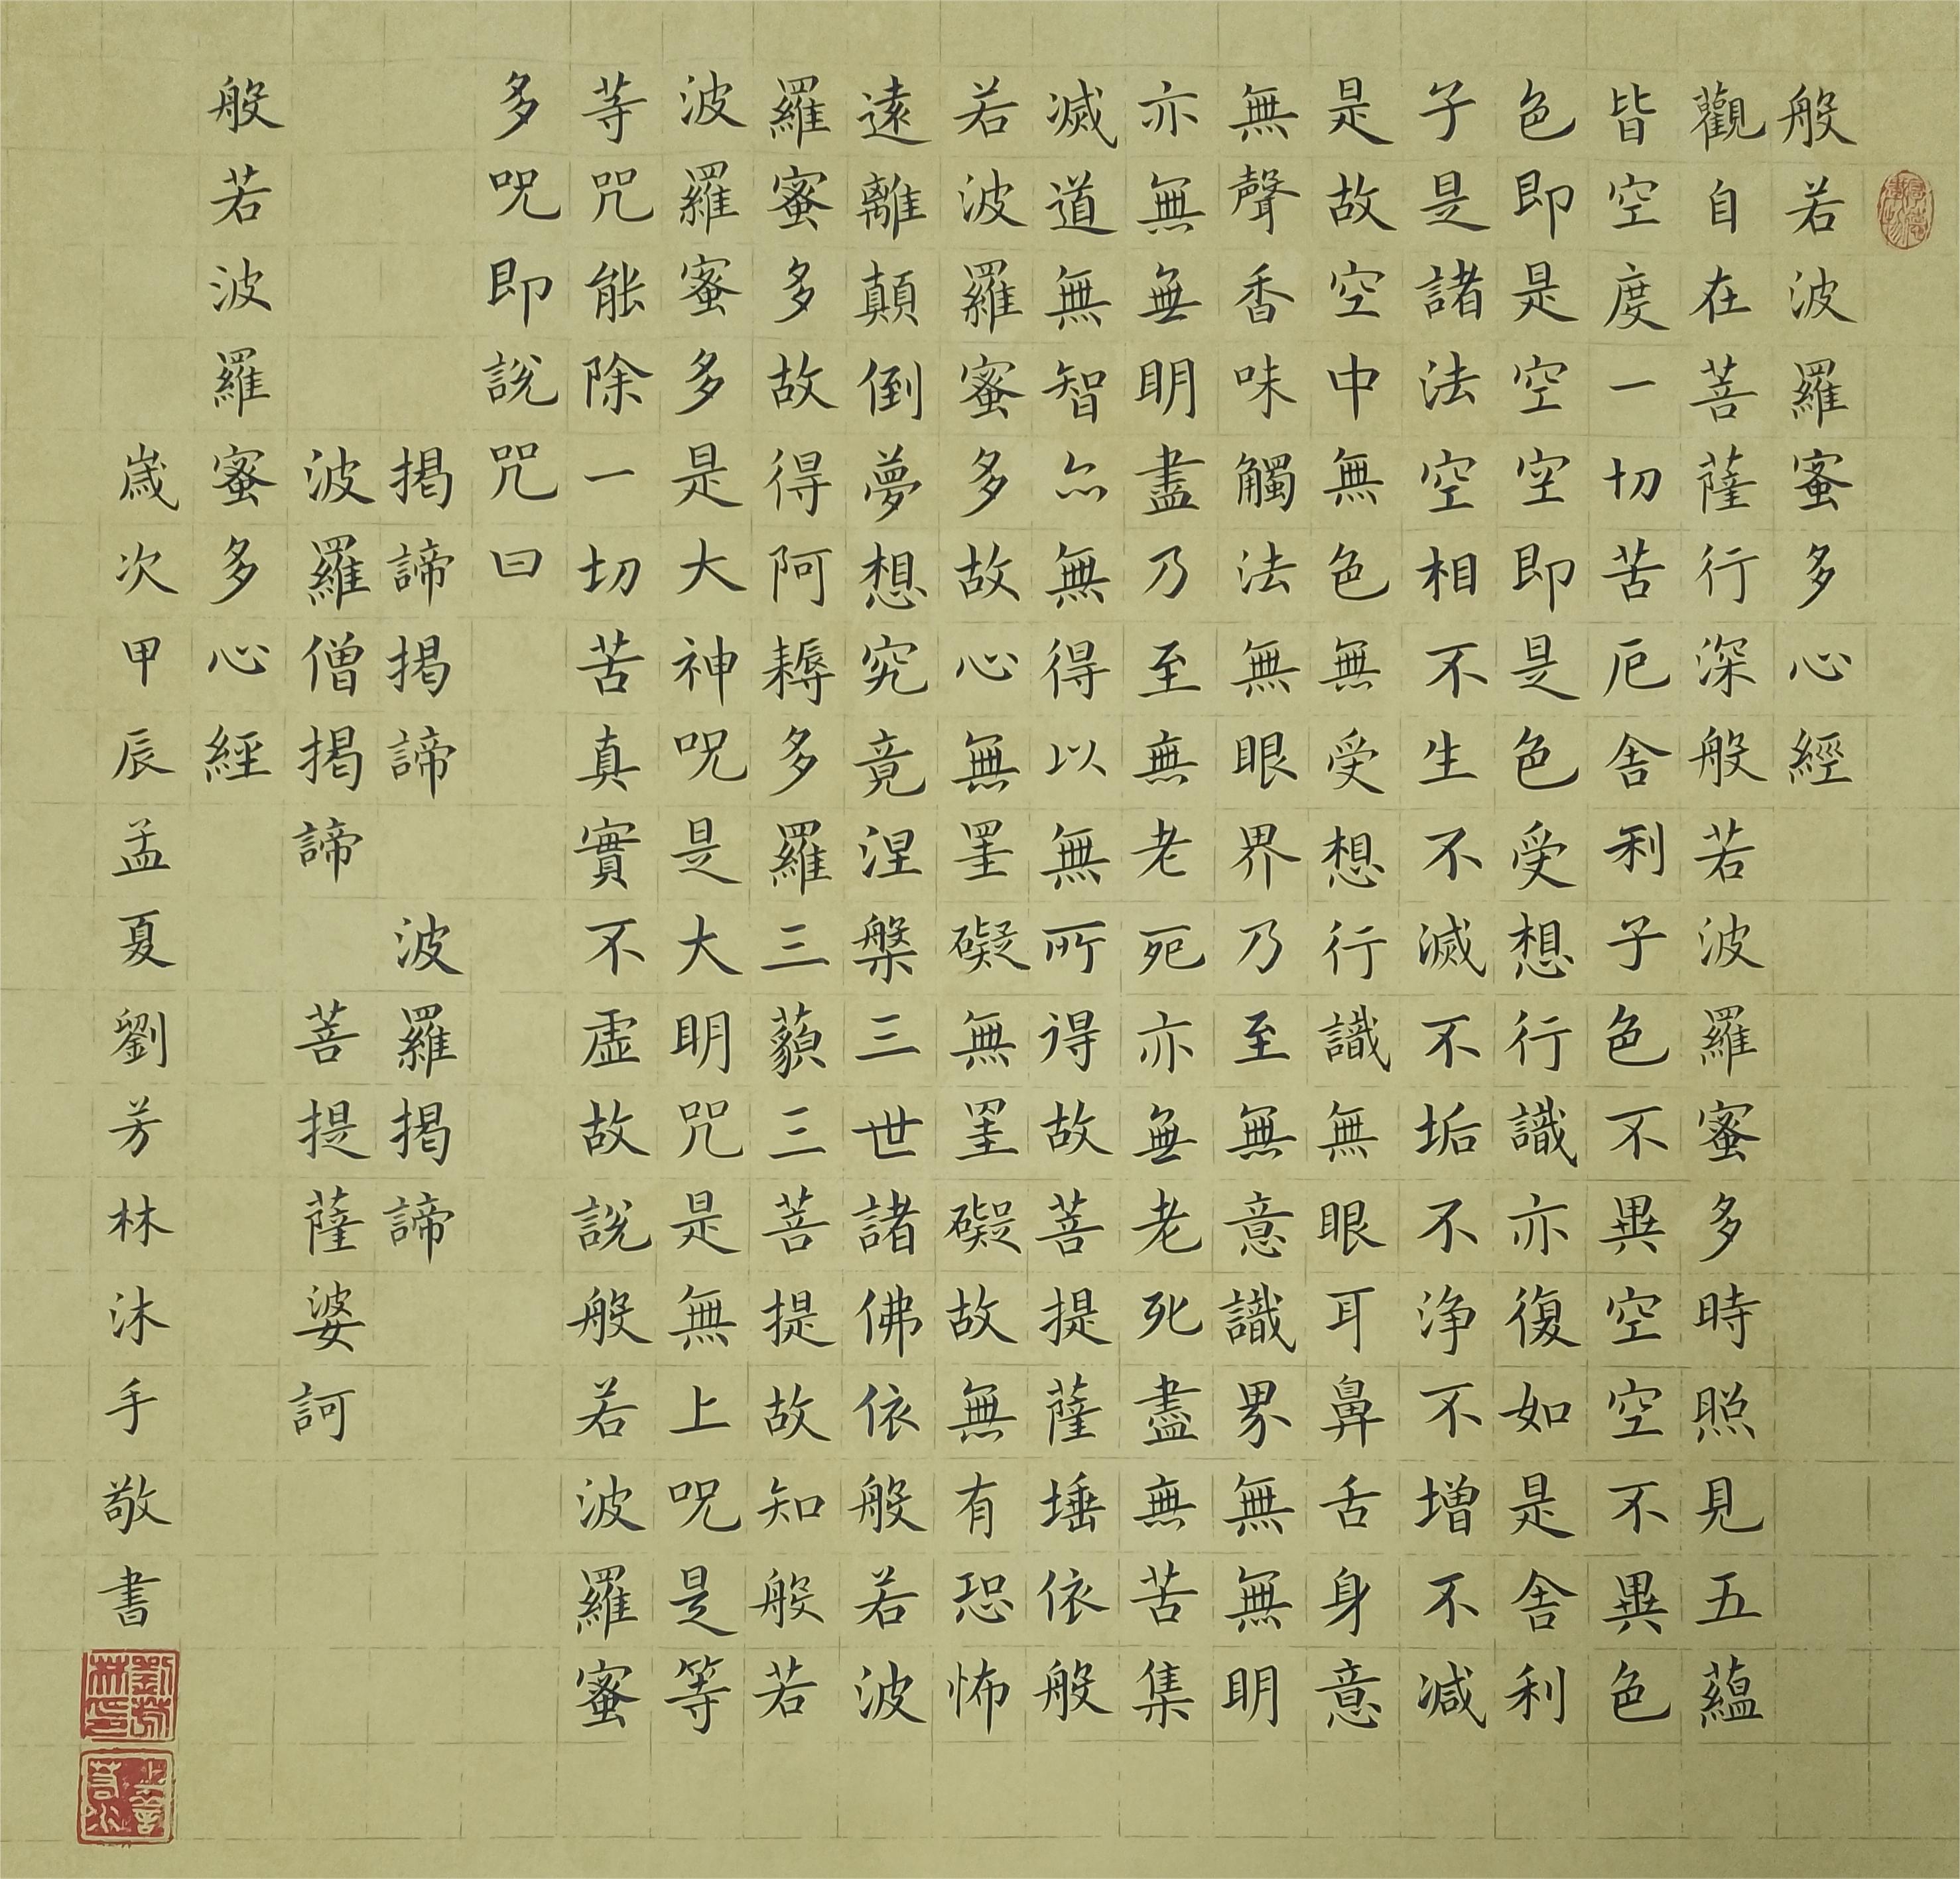 般若波羅蜜多心經
觀自在菩薩行深般若波羅蜜多時照見五蘊
皆空度一切苦厄舍利子色不異空空不異色
色即是空空即是色受想行識亦復如是舍利
子是諸法空空相不生不滅不垢不淨不增不減
是故空中無色無受想行識無眼耳鼻舌身意
無聲香味觸法無眼界乃至無意識界無無明
亦無無明盡乃至無老死亦無老死盡無苦集
滅道無智亦無得以無所得故菩提薩埵依般
若波羅蜜多故心無罣礙無罣礙故無有恐怖
遠離顛倒夢想究竟涅槃三世諸佛依般若波
羅蜜多故得阿耨多羅三藐三菩提故知般若
波羅蜜多是大神咒是大明咒是無上咒是等
等咒能除一切苦真實不虛故說般若波羅蜜
多咒即說咒曰
揭諦揭諦 波羅揭諦
波羅僧揭諦 菩提薩婆訶
般若波羅蜜多心經
歲次甲辰孟夏劉芳林沐手敬書
劉芳林印
上善若水